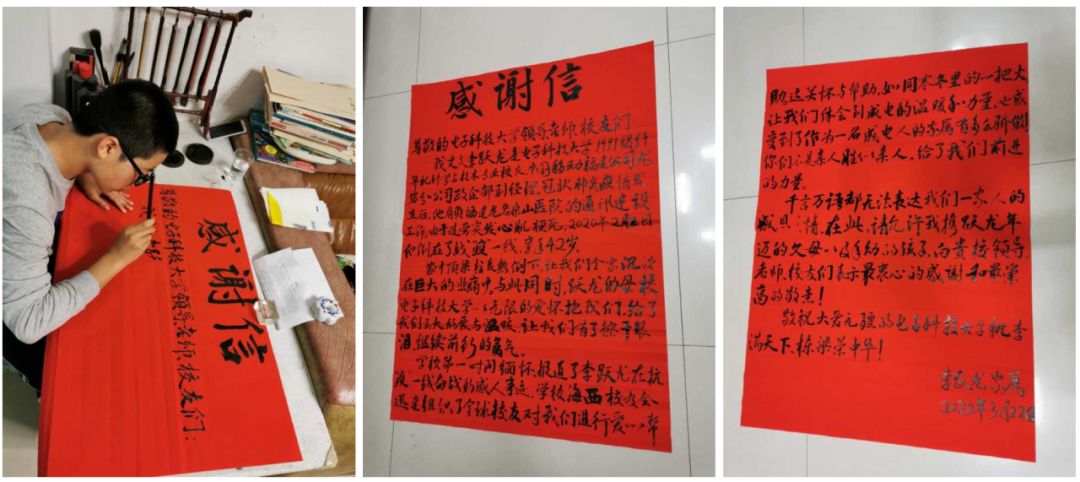 感谢信
尊敬的电子科技大学领导老师、校友们:
感谢信
尊敬的电子科技大学领导老师、校友们:
我丈夫李跃龙是电子科技大学1999级计
算机科学与技术专业校友,中国移动福建公司龙
岩分公司政企部副经理.冠状病毒疫情发
生后,他肩负福建龙岩 山医院的通讯建设
工作,由于过劳突发心肌梗死,2020年2月2日
他倒在了战"疫"一线,享年42岁.
家中顶梁柱轰然倒下,让我们全家沉浸
在巨大的悲痛中.与此同时,跃龙的母校
电子科技大学以无限的爱怀抱我们,给了
我们莫大的爱与温暖,让我们有了擦干眼
泪,继续前行的勇气.
学校第一时间缅怀、报道了李跃龙在抗
疫一线奋战的感人事迹,学校海西校友会
迅速组织了全球校友对我们进行爱心帮
助,这关怀与帮助,如同寒冬里的一把火
让我们体会到成电的温暖和力量,也感
受到了作为一名成电人的家属有多么骄傲!
你们不是亲人胜似亲人,给了我们前进
的力量.
千言万语都无法表达我们一家人的
感恩之情.在此,请允许我携跃龙年
迈的父母以及年幼的孩子,向贵校领导、
老师、校友们表示最衷心的感谢和最崇
高的敬意!
敬祝大爱无疆的电子科技大学桃李
满天下、栋梁荣中华!
李跃龙家属
2020年3月22日